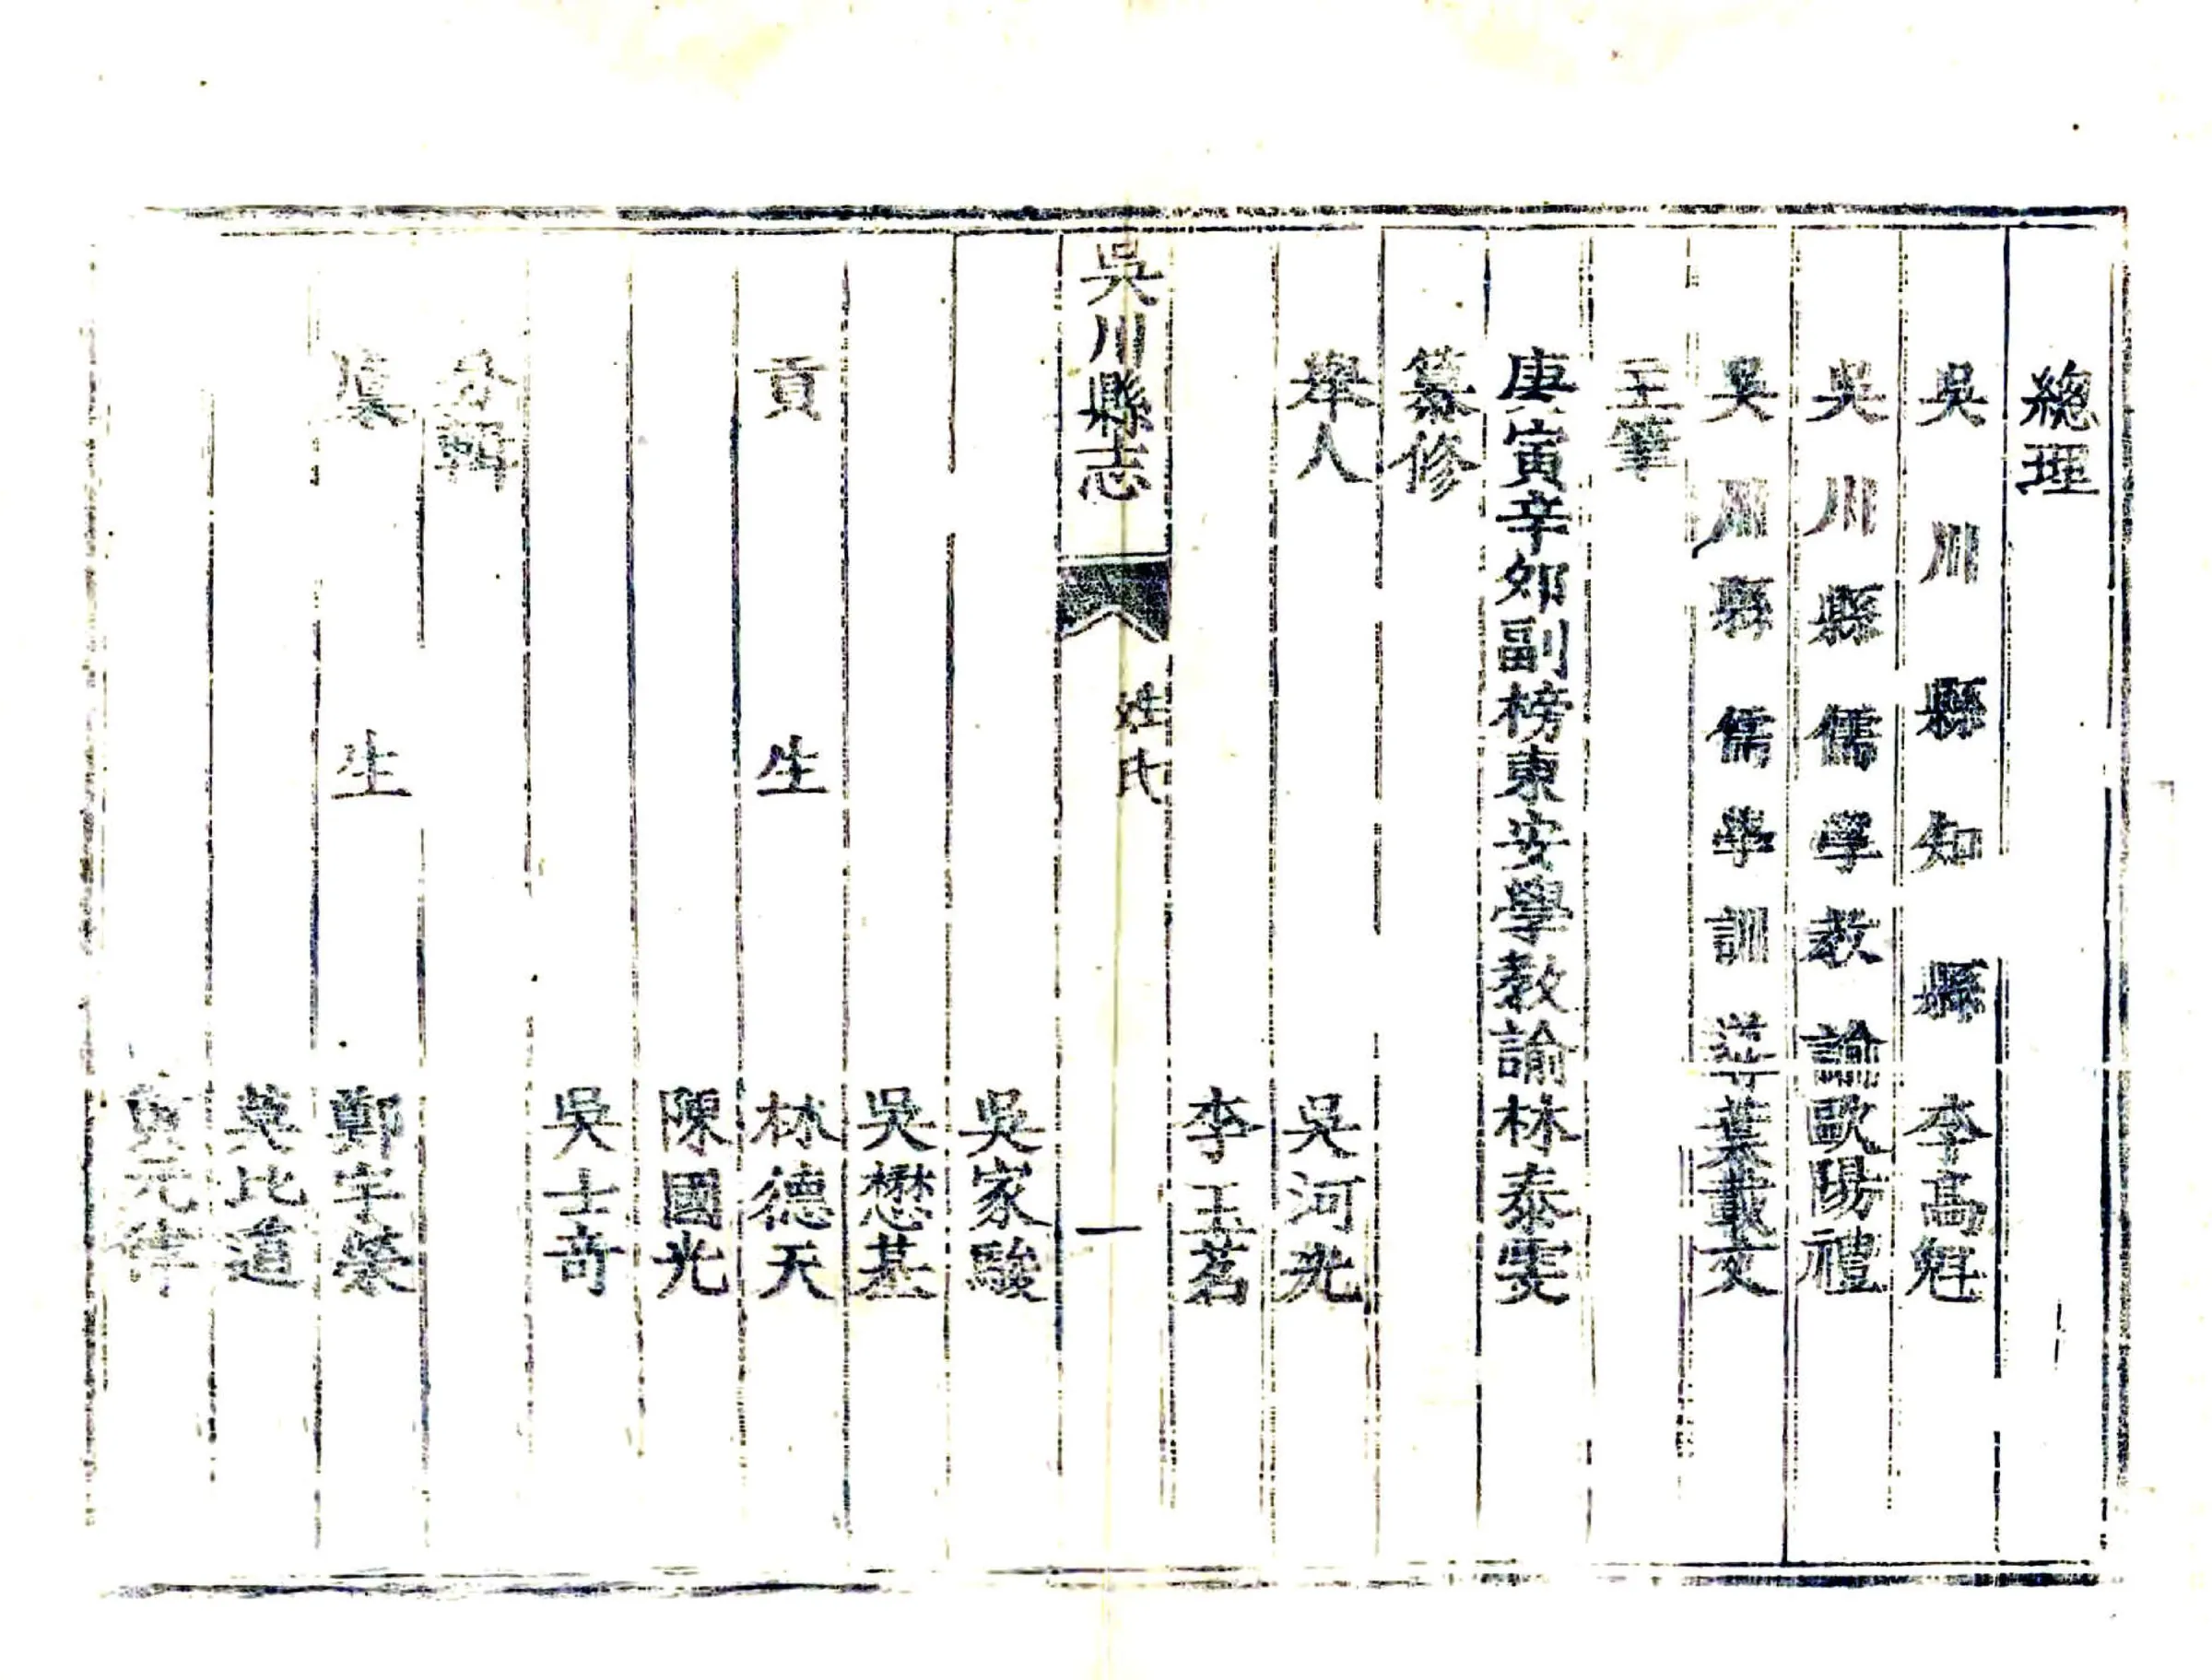 總理
吳川縣知縣李高魁
吳川縣儒學教諭歐陽禮
吳川縣儒學訓導葉載文
主筆
庚寅辛夘副榜東安學教諭林泰雯
纂修
舉人吳河光
李玉茗
吳川縣志
姓氏
一
吳家駿
吳懋基
貢生林德天
陳國光
吳士奇
分輯
廩生鄭宇榮
吳比道
元律